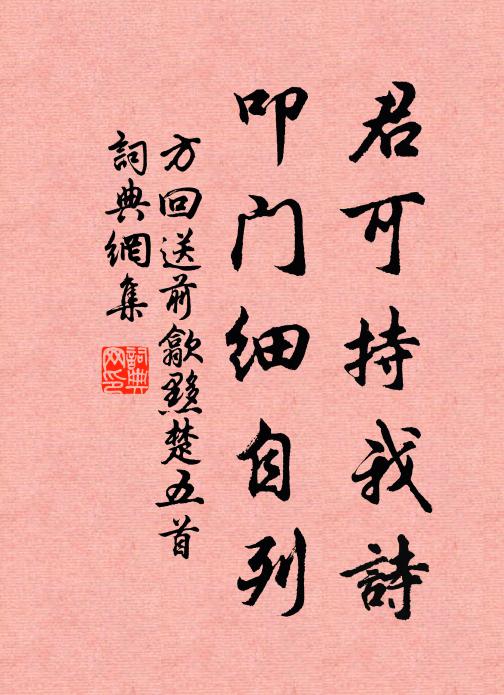 君可持我詩
叩门細自列
方回送前歙黟楚五首
詞典網集
詞典网印